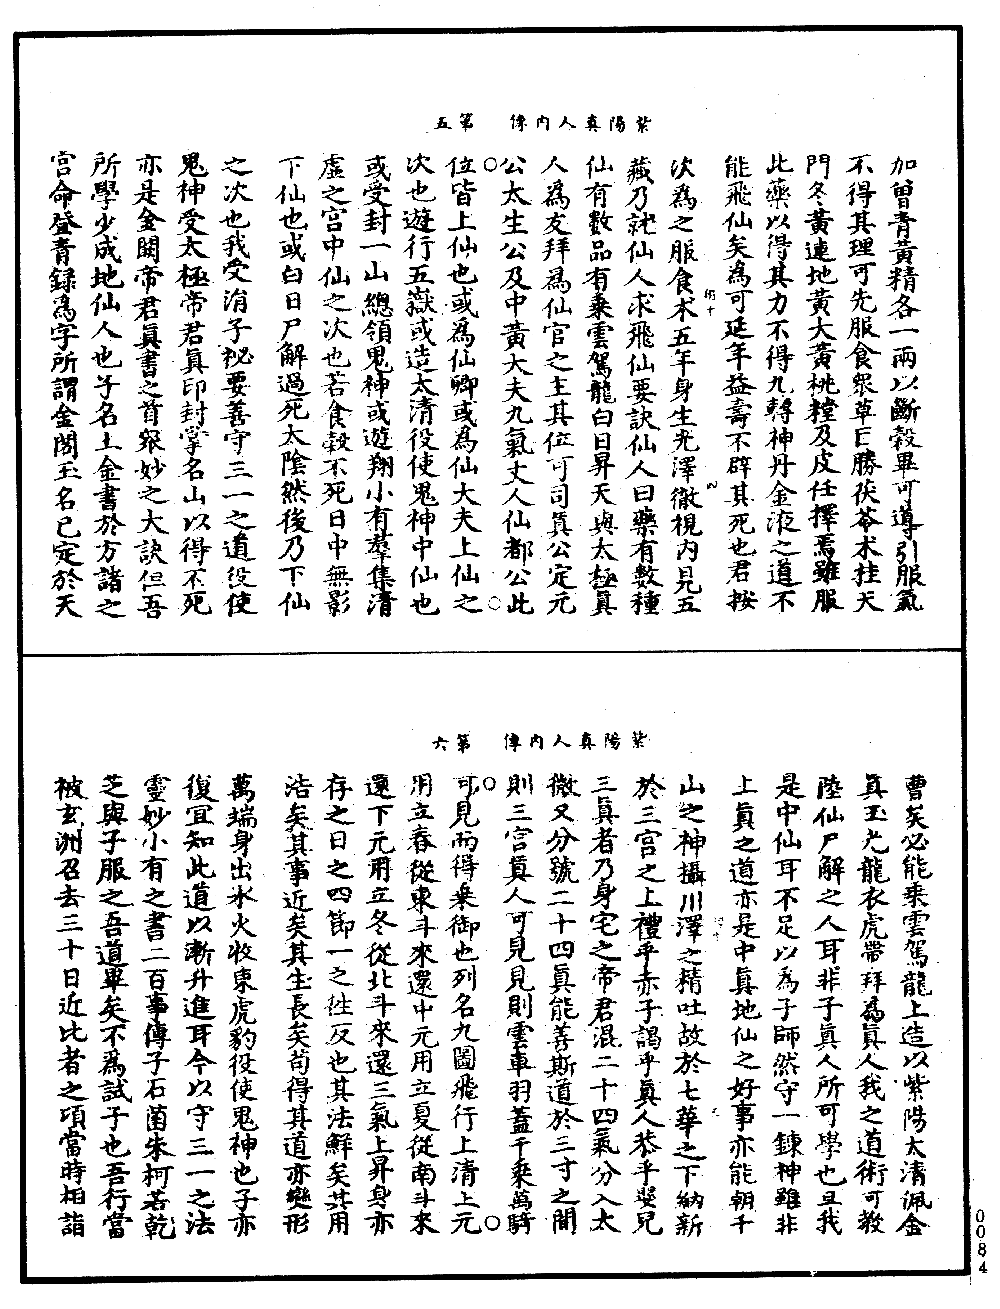 紫陽真人內傳　第五
加曾青黃精各一兩以斷穀畢可導引服氣
不得其理可先服食衆草巨勝茯苓术桂天
門冬黃連地黃大黃桃檉及皮任擇焉雖服
此藥以得其力不得九轉神丹金液之道不
能飛仙矣為可延年益壽不辟其死也君按
次為之服食术五年身生光澤徹視內見五
藏乃就仙人求飛仙要訣仙人曰藥有數種
仙有數品有乘雲駕龍白日昇天與太極真
人為友拜為仙官之主其位可司真公定元
公太生公及中黃大夫九氣丈人仙都公此
位皆上仙也或為仙卿或為仙大夫上仙之
次也遊行五嶽或造太清役使鬼神中仙也
或受封一山總領鬼神或遊翔小有羣集清
虛之宮中仙之次也若食穀不死日中無影
下仙也或白日尸解過死太陰然後乃下仙
之次也我受涓子祕要善守三一之道役使
鬼神受太極帝君真印封掌名山以得不死
亦是金闕帝君真書之首衆妙之大訣但吾
所學少成地仙人也子名上金書於方諸之
宮命登青錄為字所謂金閣玉名已定於天
紫陽真人內傳　第六
曹矣必能乘雲駕龍上造以紫陽太清佩金
真玉光龍衣虎帶拜為真人我之道術可教
陸仙尸解之人耳非子真人所可學也且我
是中仙耳不足以為子師然守一鍊神雖非
上真之道亦是中真地仙之好事亦能朝千
山之神攝川澤之精吐故於七華之下納新
於三宮之上禮乎赤子謁乎真人恭乎嬰兒
三真者乃身宅之帝君混二十四氣分入太
微又分號二十四真能善斯道於三寸之間
則三宮真人可見見則雲車羽蓋千乘萬騎
可見而得乘御也列名九圖飛行上清上元
用立春從東斗來還中元用立夏從南斗來
還下元用立冬從北斗來還三氣上昇身亦
存之日之四節一之往反也其法鮮矣其用
浩矣其事近矣其生長矣苟得其道亦變形
萬端身出水火收束虎豹役使鬼神也子亦
復宜知此道以漸升進耳今以守三一之法
靈妙小有之書二百事傳子石菌朱柯若乾
芝與子服之吾道畢矣不為試子也吾行當
被玄洲召去三十日近比者之項當時相詣
0084